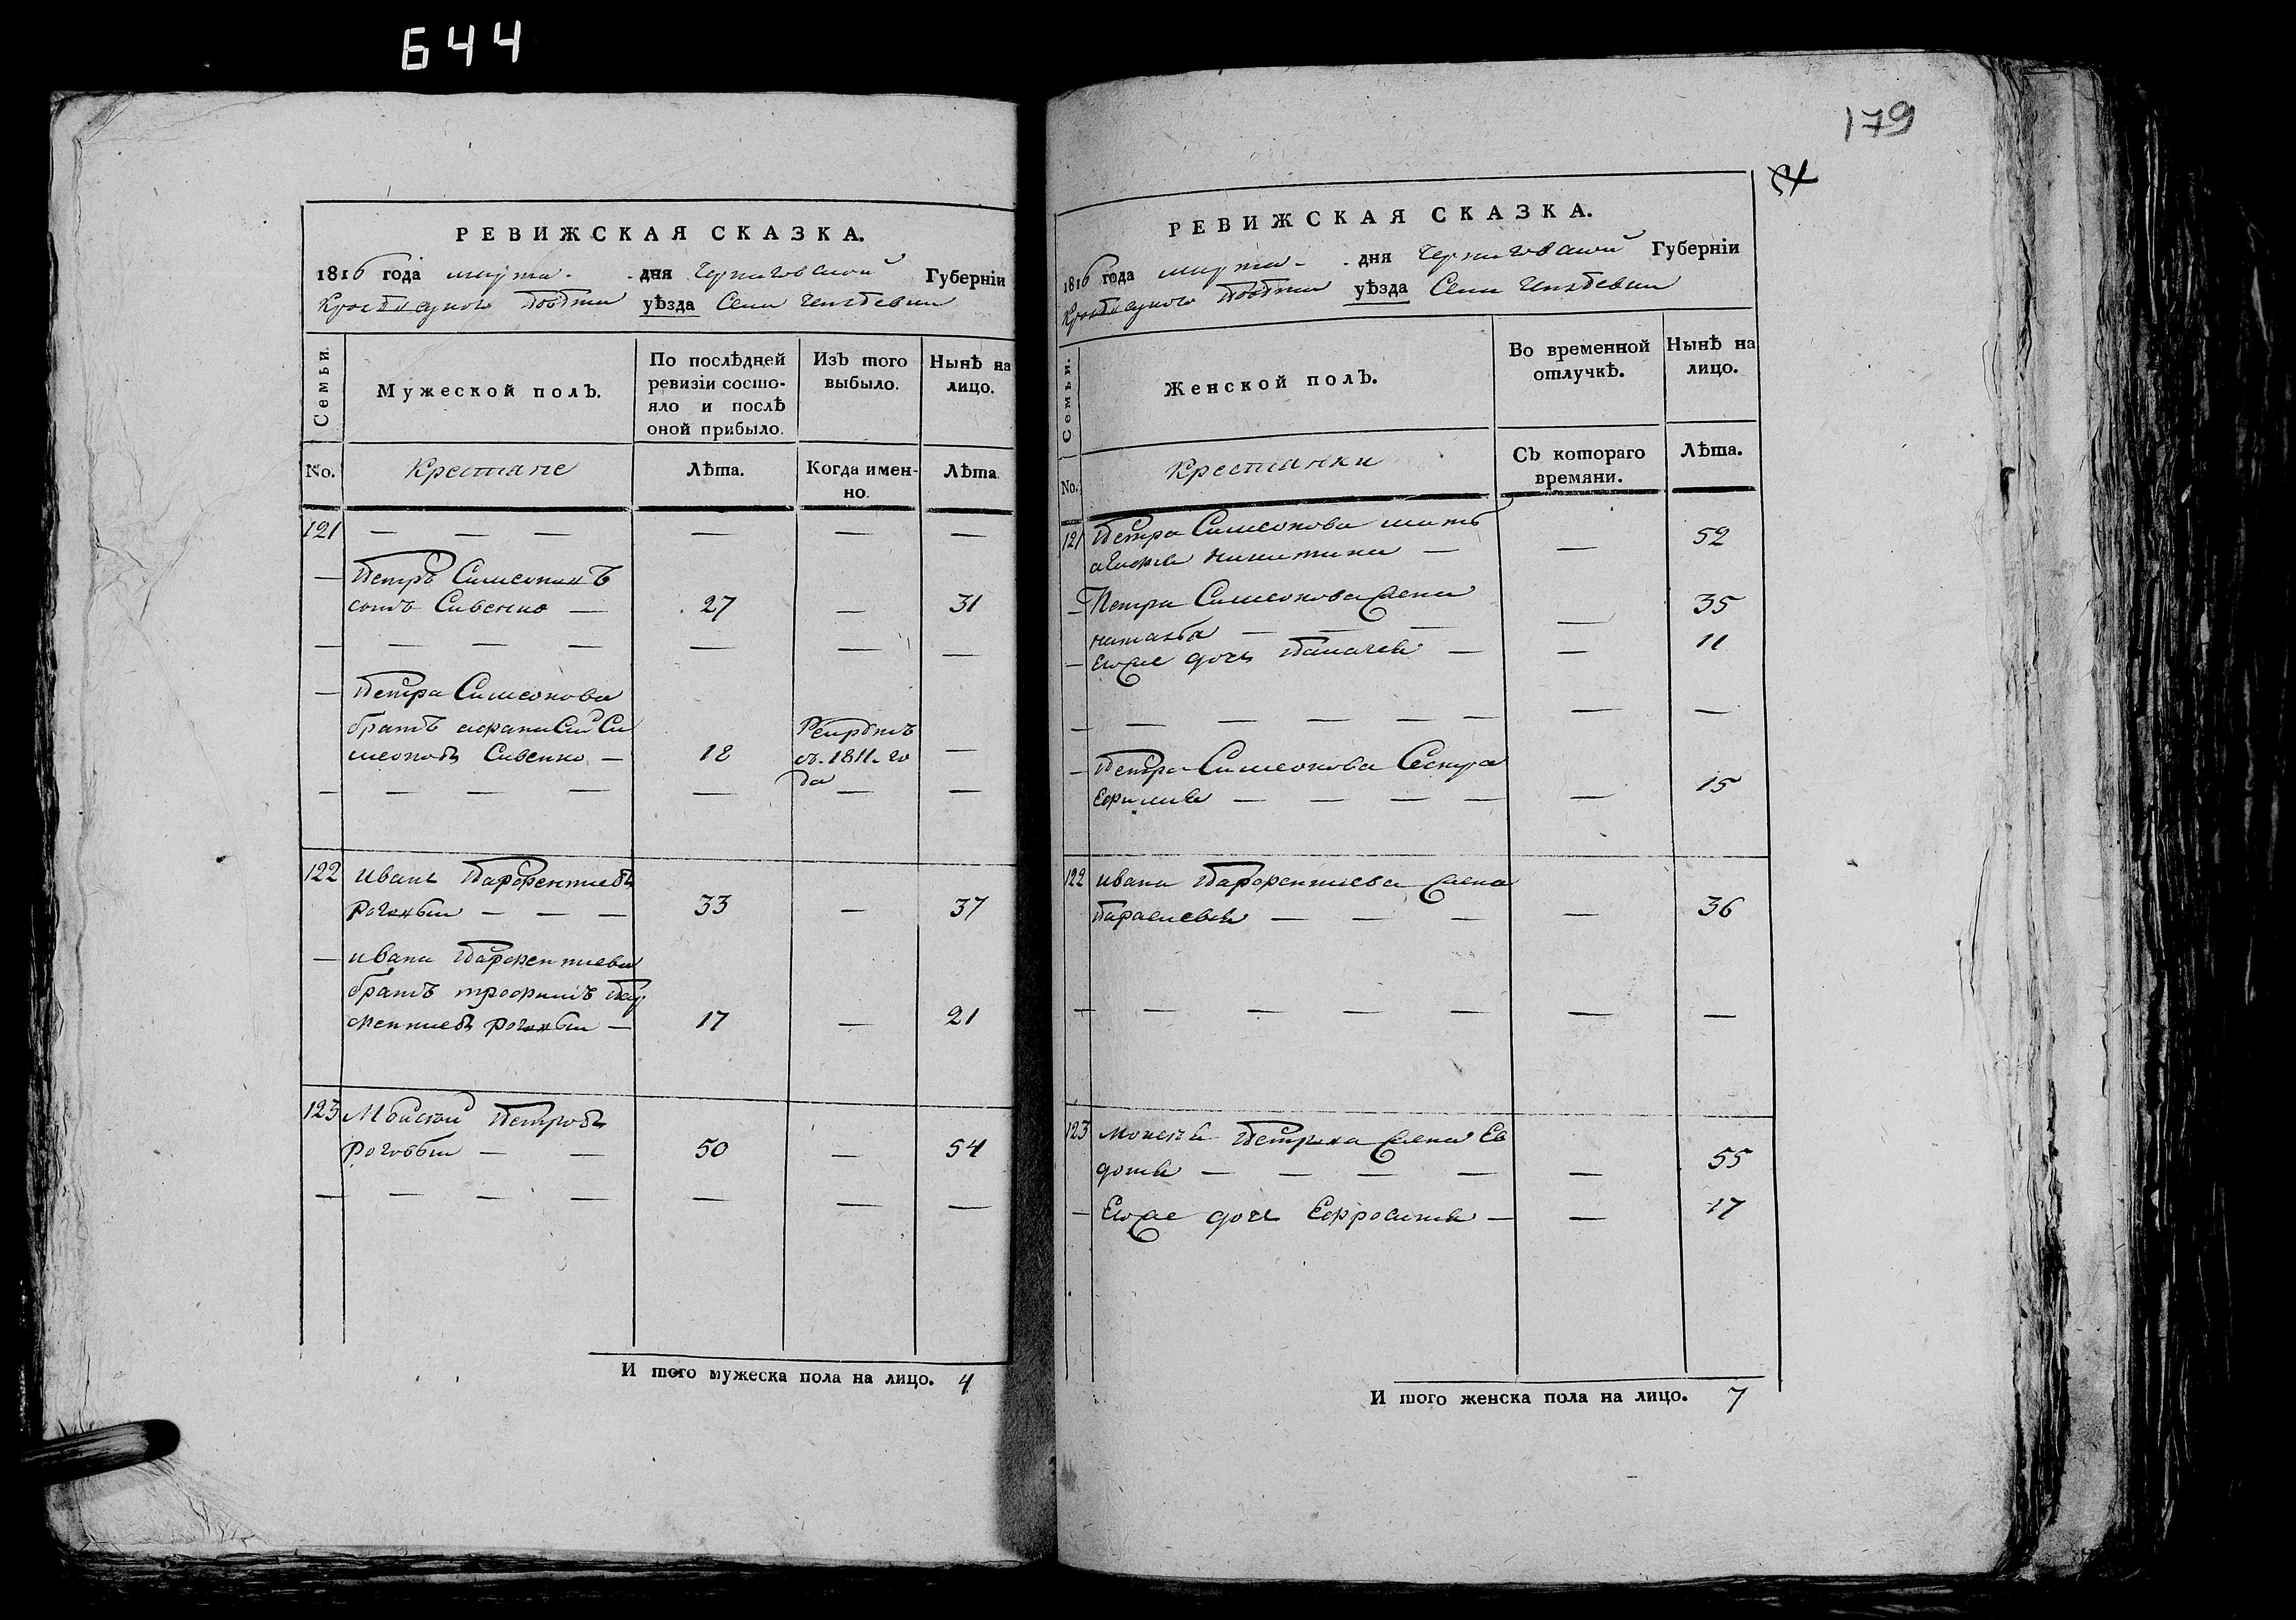 644
РЕВИЖСКАЯ СКАЗКА.
1816 года марта дня Черниговской Губерніи
повѣта уѣзда Села
Семьи.
Мужеской полъ.
По послѣдней ревизіи состо-
яло и послѣ
оной прибыло.
Изъ того выбыло.
Нынѣ на лицо.
No.
Крестяне
Лѣта.
Когда имен-
но.
Лѣта
121 — — — — — —
— Петръ Симеонинъ
сынъ Сивенко — 27 — 31
— — — — — — —
— Петра Симеонова
братъ афанасий Си
меоновъ Сивенко — 18 Рекрутъ
съ 1811 го
да —
— — — — — — —
122 иванъ Парфентиевъ
— — — 33 — 37
— ивана Парфентиева
братъ трофимъ Пар
фентиевъ — 17 — 21
123 Мойсий Петровъ
Роговый — — 50 — 54
— — — — — — —
И того мужеска пола на лицо. 4
179
РЕВИЖСКАЯ СКАЗКА.
1816 года марта дня Черниговской Губерніи
повѣта уѣзда Села
Семьи.
Женской полъ.
Во временной
отлучкѣ.
Нынѣ на
лицо.
No.
Крестянки
Съ котораго
времяни.
Лѣта.
121 Петра Симеонова мать
никитина — — 52
— Петра Симеонова жена
наталья — — — — 35
— Егоже дочь Палагея — — 11
— — — — — — — —
— Петра Симеонова Сестра
Ефимия — — — — — 15
122 ивана Парфентиева жена
Параскевия — — — — 36
— — — — — — —
123 моисея Петрова жена Ев
докия — — — — — 55
— Егоже дочь Ефросиния — — 17
И того женска пола на лицо. 7